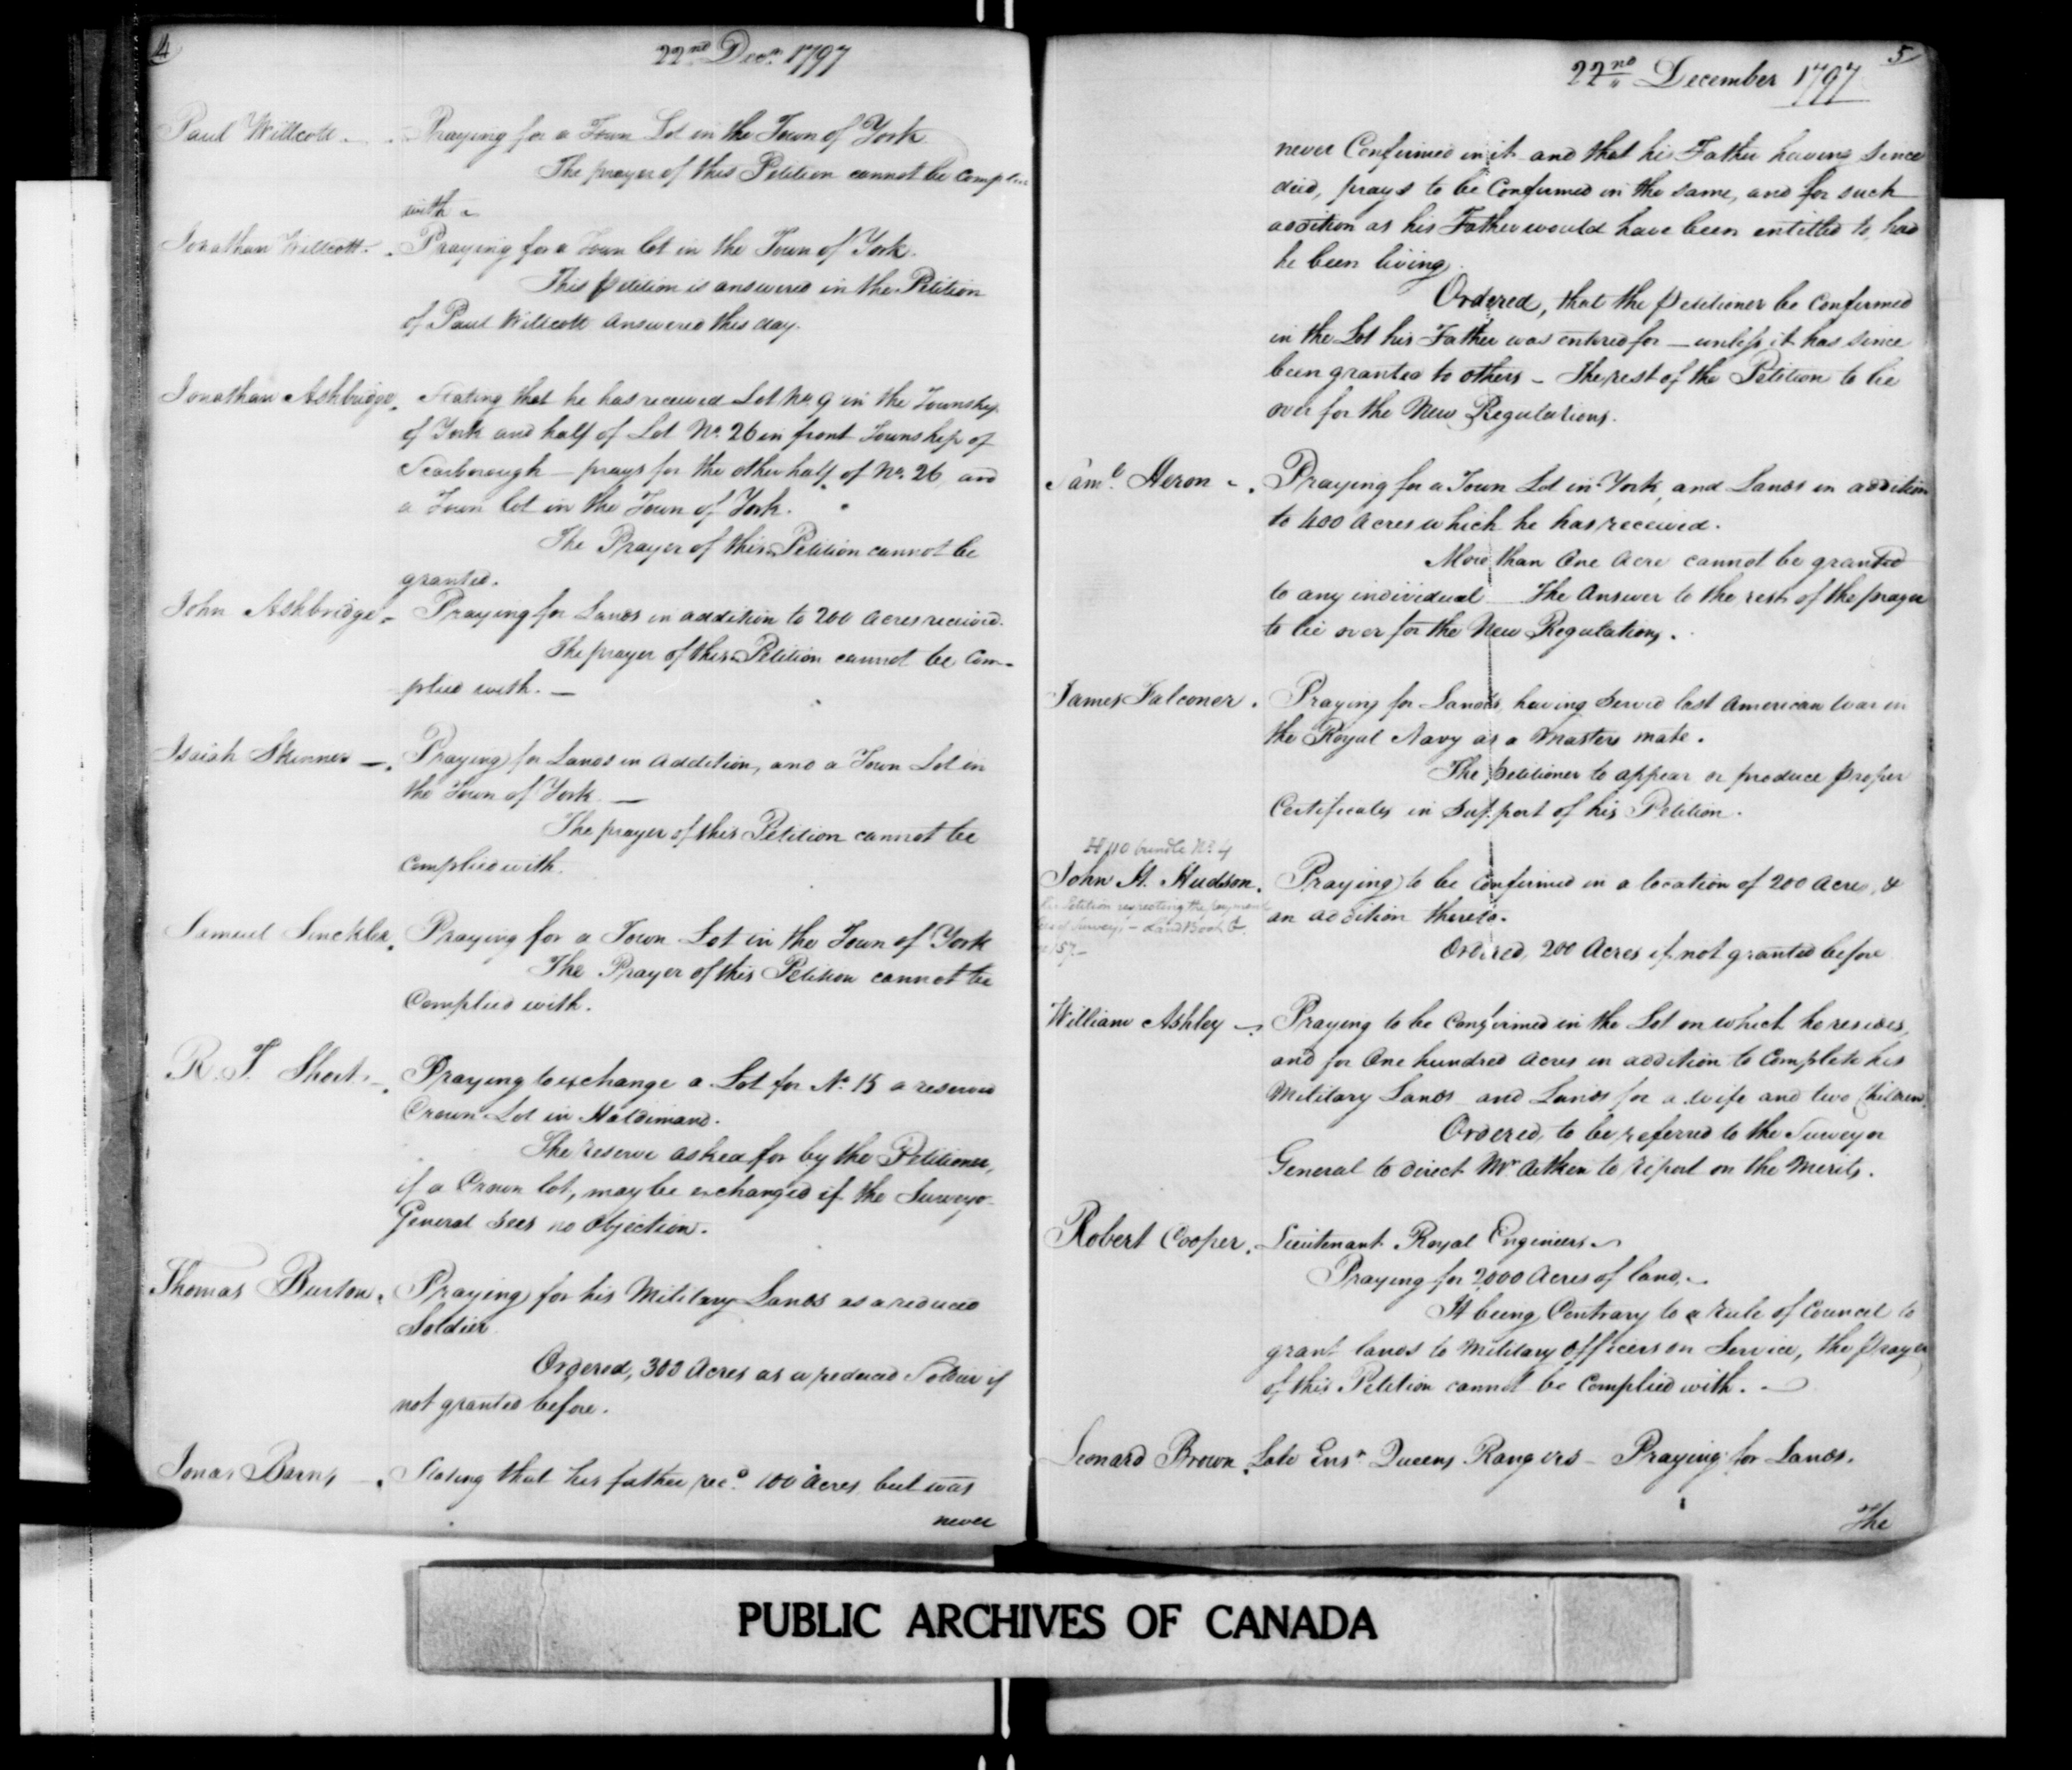 4
22nd Decr. 1797
Paul Willcott - Praying for a Town Lot in the Town of York
The prayer of this Petition cannot be complied
with -
Jonathan Willcott - Praying for a Town lot in the Town of York.
This petition is answered in the Petition
of Paul Willcott answered this day.
Jonathan Ashbridge. Stating that he has received Lot No. 9 in the Township
of York and half of Lot No. 26 in front Township of
Scarborough - prays for the other half of No. 26, and
a Town lot in the Town of York.
The Prayer of this Petition cannot be
granted.
John Ashbridge - Praying for Lands in addition to 200 acres received.
The prayer of this Petition cannot be Com-
plied with. -
Isaiah Skinner - Praying for Lands in addition, and a Town Lot in
the Town of York -
The prayer of this Petition cannot be
complied with.
Samuel Sinckler. Praying for a Town Lot in the Town of York
The Prayer of this Petition cannot be
Complied with.
R. T. Short - Praying to exchange a Lot for No. 15 a reserved
Crown Lot in Haldimand.
The reserve asked for by the Petitioner,
if a Crown lot, may be exchanged if the Surveyor
General sees no Objection.
Thomas Burton. Praying for his Military Lands as a reduced
Soldier
Ordered, 300 Acres as a reduced Soldier if
not granted before.
Jonas Barns - Stating that his father recd. 100 acres but was
never
5
22nd December 1797
never Confirmed in it and that his Father having since
died, prays to be Confirmed in the same, and for such
addition as his Father would have been entitled to, had
he been living.
Ordered, that the petitioner be Confirmed
in the Lot his Father was entered for - unless it has since
been granted to others - The rest of the Petition to lie
over for the New Regulations.
Saml. Heron - Praying for a Town Lot in York, and Lands in addition
to 400 acres which he has received.
More than One Acre cannot be granted
to any individual - The Answer to the rest of the prayer
to lie over for the New Regulations.
James Falconer. Praying for Lands, having served last American War in
the Royal Navy as a Masters mate.
The petitioner to appear or produce proper
Certificates in Support of his Petition.
H/10 bundle No. 4
John H. Hudson. Praying to be Confirmed in a location of 200 acres, &
Petition respecting the payment
an addition thereto.
of Survey - Land Book
157 -
Ordered, 200 Acres if not granted before
William Ashley - Praying to be Confirmed in the Lot on which he resides,
and for One hundred acres in addition to Complete his
Military Lands and Lands for a wife and two Children.
Ordered, to be referred to the Surveyor
General to direct Mr. Aitken to report on the Merits.
Robert Cooper. Lieutenant Royal Engineers -
Praying for 2000 Acres of land. -
It being Contrary to a Rule of Council to
grant lands to Military Officers on Service, the prayer
of this Petition cannot be Complied with. -
Leonard Brown. Late Ensn. Queens Rangers - Praying for Lands.
The
PUBLIC ARCHIVES OF CANADA